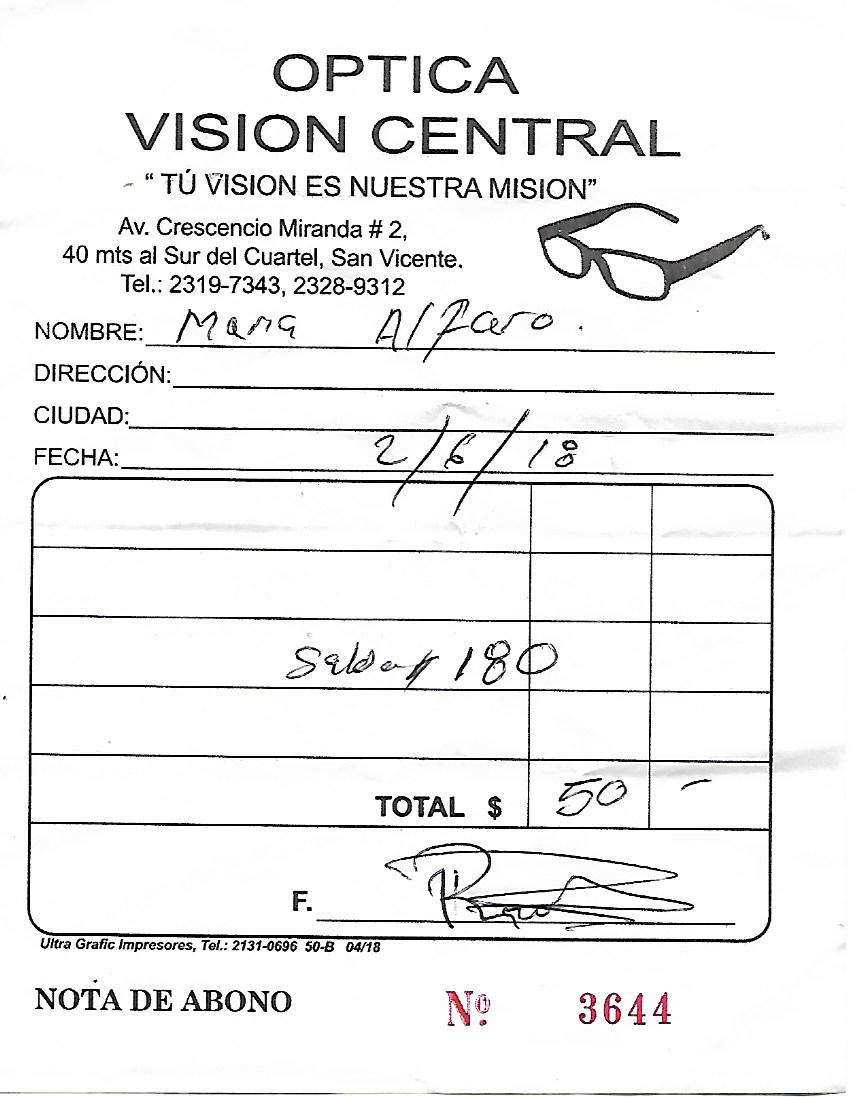 OPTICA
VISION CENTRAL
“ TÚ VISION ES NUESTRA MISION”
Av. Crescencio Miranda # 2,
40 mts al Sur del Cuartel, San Vicente.
Tel.: 2319-7343, 2328-9312
NOMBRE: Maria Alfaro.
DIRECCIÓN:
CIUDAD:
FECHA: 2/6/18
Saldo $ 180
TOTAL $ 50 -
F.
Ultra Grafic Impresores, Tel.: 2131-0696 50-B 04/18
NOTA DE ABONO Nº. 3644